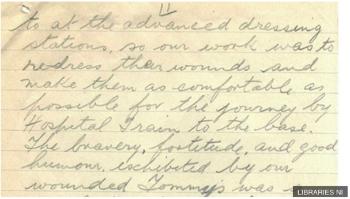 11
to at the advanced dressing
stations, so our work was to
re-dress their wounds and
make them as comfortable as
possible for the journey by
Hospital Train to the base.
The bravery, fortitude, and good
humour, exhibited by our
wounded Tommys was
LIBRARIES NI